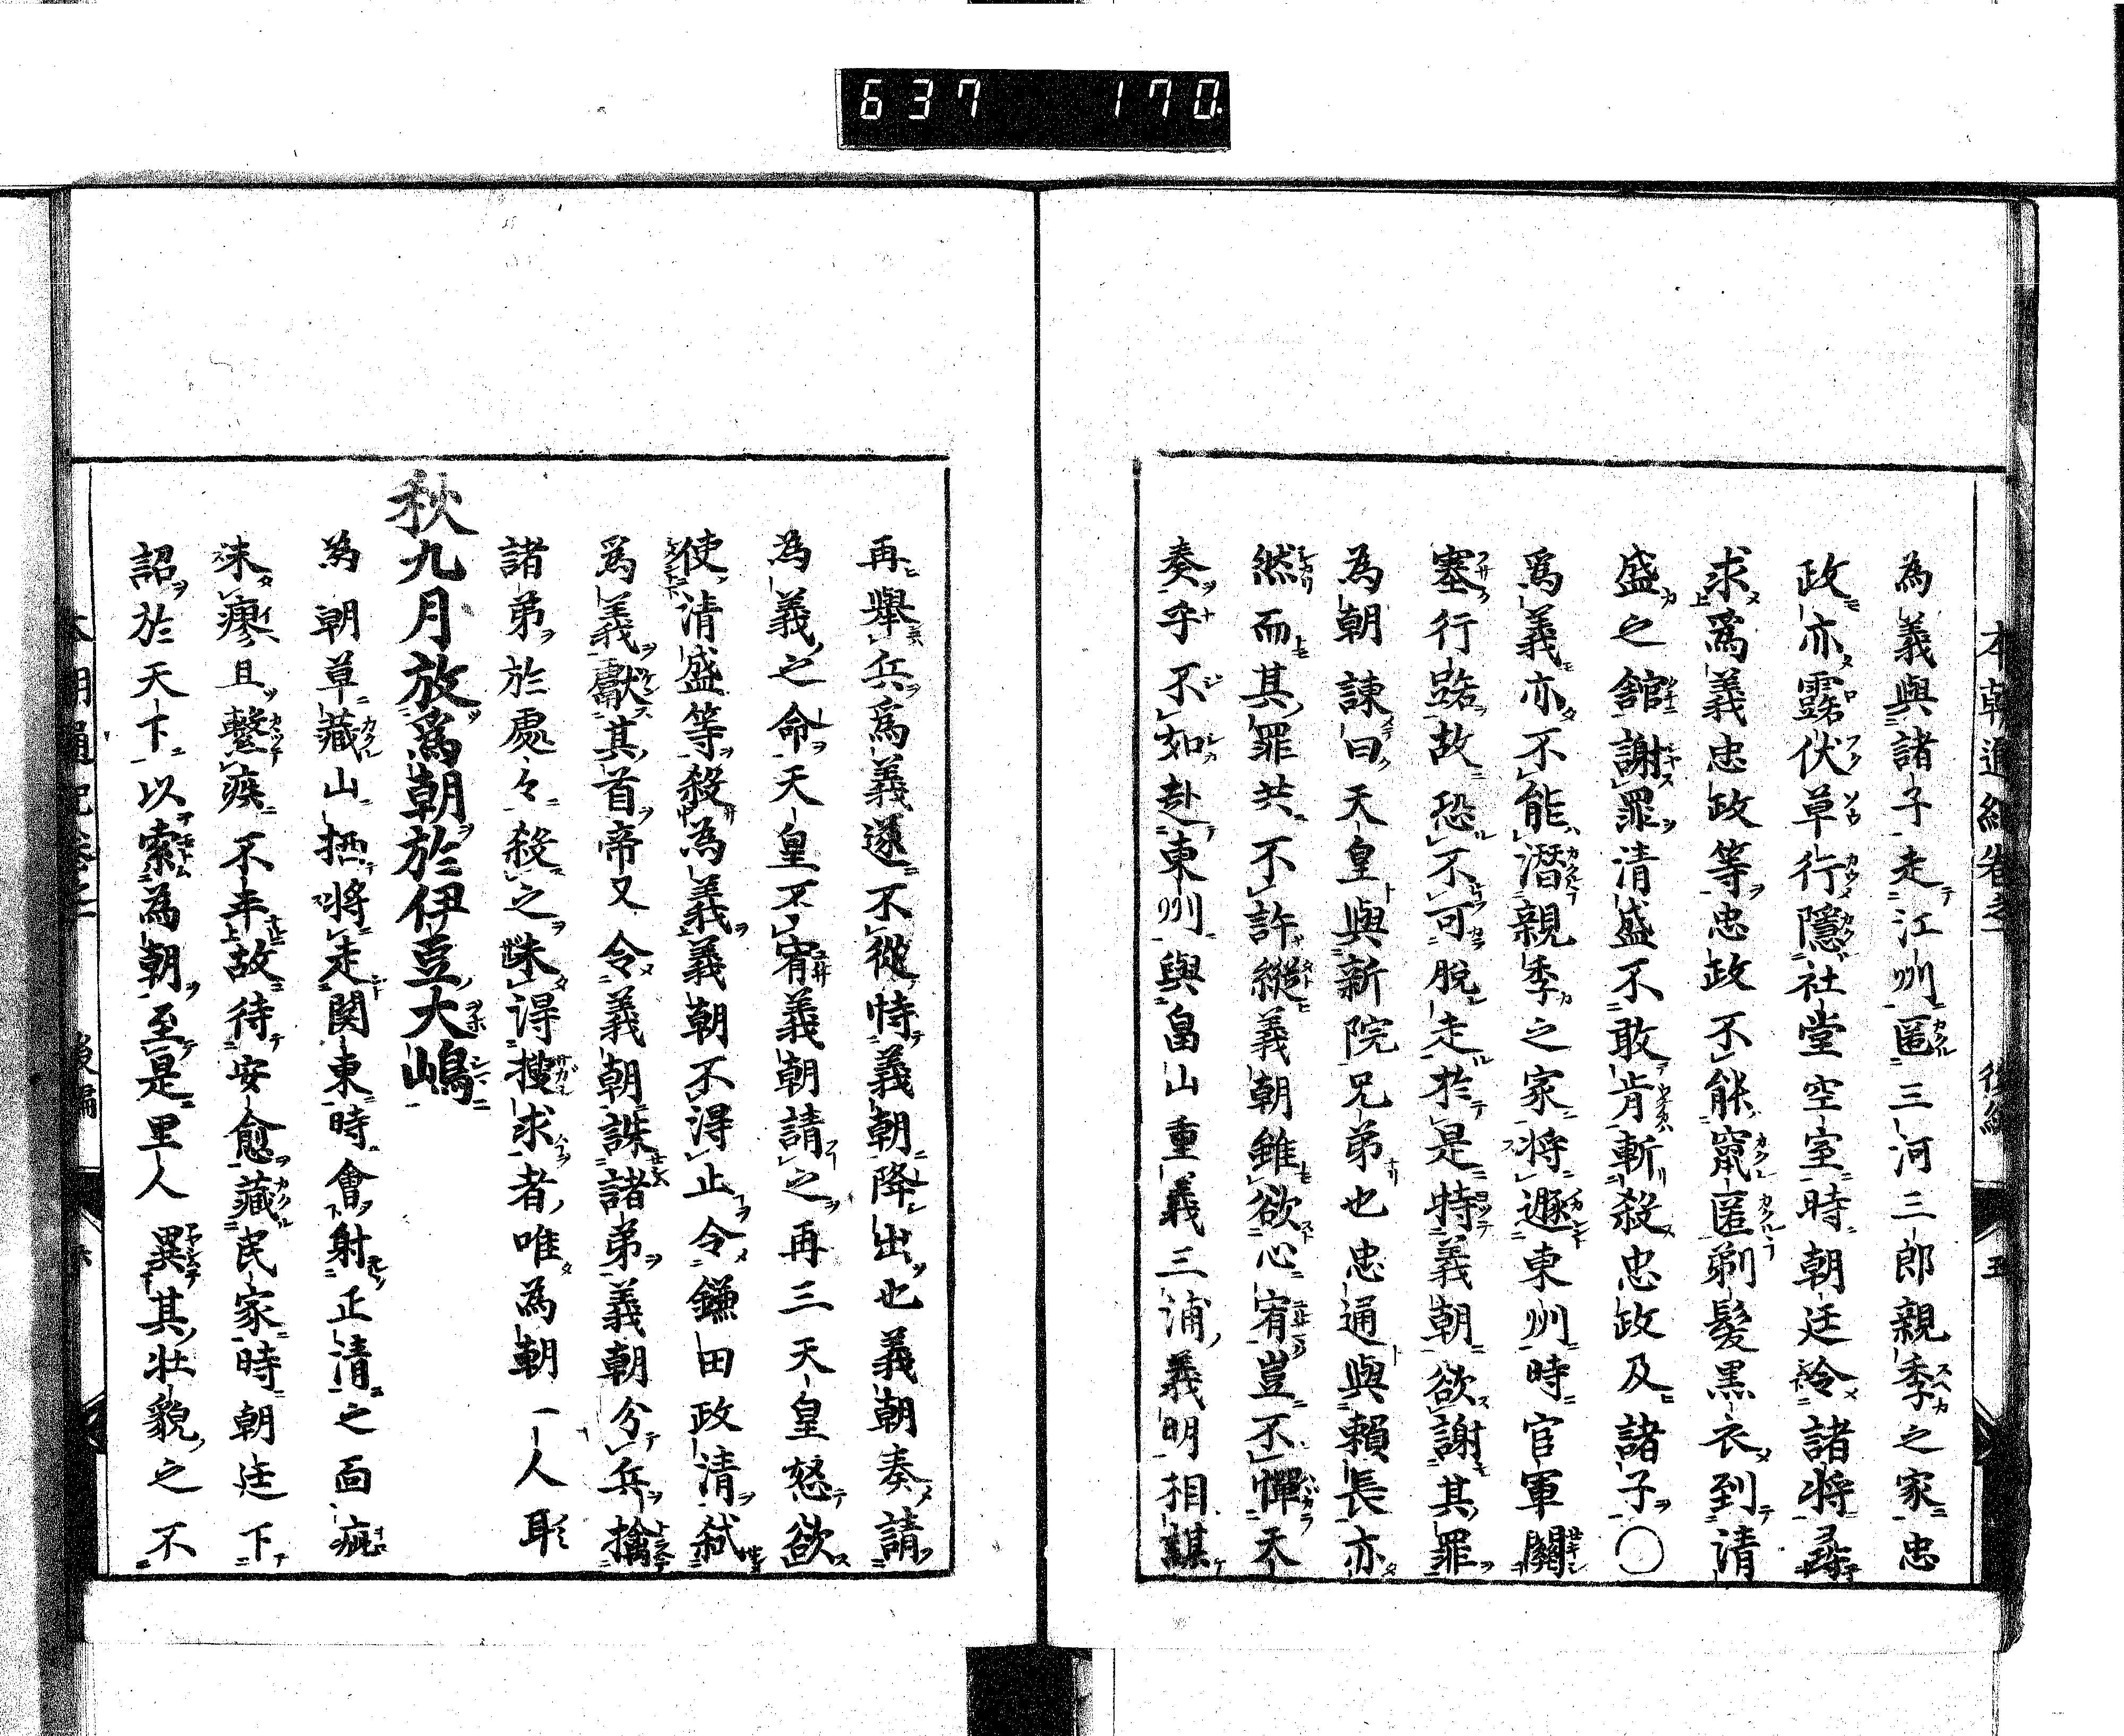 637 170
本朝通紀卷之 後編 五
為義與諸子走江州匿三河三郎親季之家忠
政亦露伏草行隱社堂空室時朝廷令諸将尋
求爲義忠政等忠政不能竄匿剃髮黒衣到清
盛之舘謝罪清盛不敢肯斬殺忠政及諸子〇
爲義亦不能潛親季之家将遯東州時官軍關
塞行路故恐不可脱走於是恃義朝欲謝其罪
為朝諌曰天皇與新院兄弟也忠通與頼長亦
然而其罪共不許縱義朝雖欲心宥豈不憚天
奏乎不如赴東州與畠山重義三浦義明相謀
再舉兵爲義遂不從恃義朝降出也義朝奏請
為義之命天皇不宥義朝請之再三天皇怒欲
使清盛等殺為義義朝不得止令鎌田政清弑
爲義獻其首帝又令義朝誅諸弟義朝分兵擒
諸弟於處々殺之未得搜求者唯為朝一人耳
秋九月放爲朝於伊豆大嶋
為朝草藏山栖将走関東時會射正清之面疵
未瘳且罄疾不幸故待安愈藏民家時朝廷下
詔於天下以索為朝至是里人異其壮貌之不